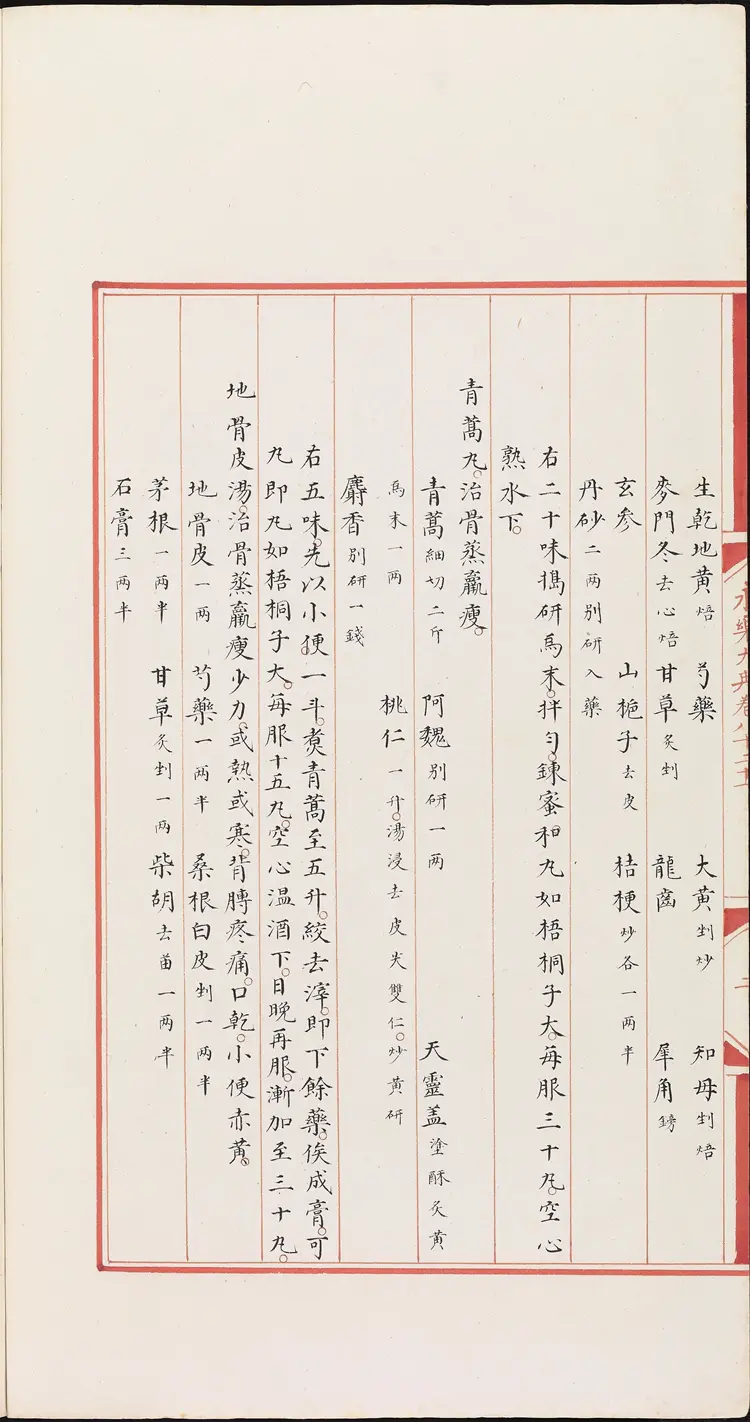 生乾地黄焙 芍藥 大黄剉炒 知母剉焙
麥門冬去心焙 甘草炙剉 龍齒 犀角鎊
玄參 山梔子去皮 桔梗炒各一两半
丹砂二两別研入藥
右二十味搗研爲末。拌勻。鍊蜜和丸如梧桐子大。每服三十丸。空心
熟水下。
青蒿丸。治骨蒸羸瘦。
青蒿細切二斤 阿魏別研一两 天靈盖塗酥炙黄
爲末一两 桃仁一升。湯浸去皮尖雙仁。炒黄研
麝香別研一錢
右五味。先以小便。一斗。煑青蒿至五升。絞去滓。即下餘藥。俟成膏。可
丸即丸如梧桐子大。每服十五丸。空心温酒下。日晚再服。漸加至三十丸。
地骨皮湯。治骨蒸羸瘦少力。或熱或寒。背膊疼痛。口乾。小便赤黄。
地骨皮一两 芍藥一两半 桑根白皮剉一两半
茅根一两半 甘草炙剉一两 柴胡去苗一两半
石膏三两半